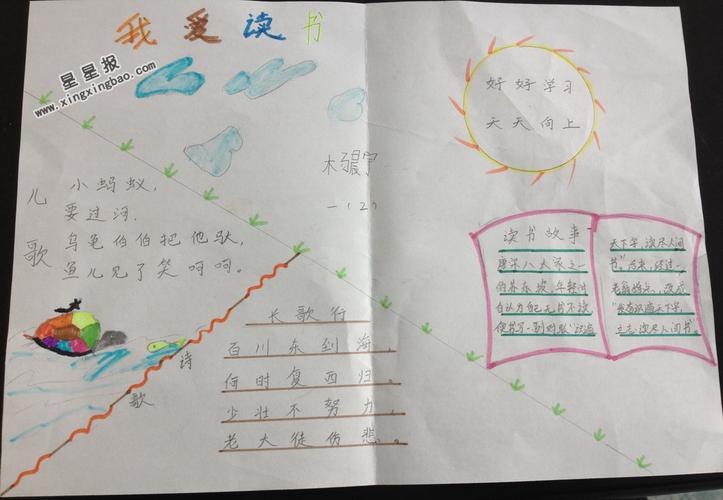 我爱读书
星星报
www.xingxingbao.com
好好学习
天天向上
一(2)
儿歌
小蚂蚁,
要过河.
乌龟伯伯把他驮,
鱼儿见了笑呵呵。
诗歌
长歌行
百川东到海,
何时复西归。
少壮不努力,
老大徒伤悲。
读书故事
唐宋八大家之一
的苏东坡,年轻时
自认为自己无书不读
便书写一副对联"识遍
天下字,读尽人间
书"后来,经过一
老翁指点,改成
"发奋识遍天下字,
立志读尽人间书"